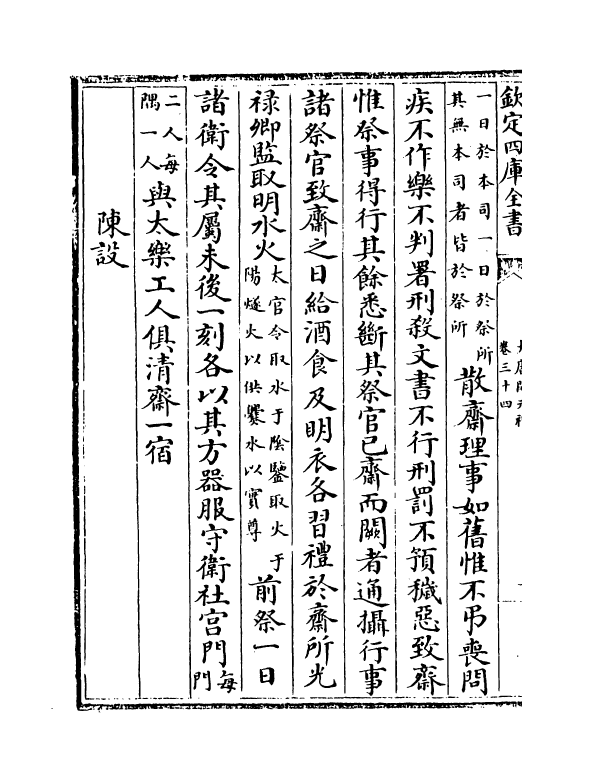 欽定四庫全書
卷三十四
一日於本司一日於祭所
其無本司者皆於祭所
散齋理事如舊惟不弔喪問
疾不作樂不判署刑殺文書不行刑罰不預穢惡致齋
惟祭事得行其餘悉斷其祭官已齋而闕者通攝行事
諸祭官致齋之日給酒食及明衣各習禮於齋所光
禄卿監取明水火
太官令取水于陰鑒取火于
陽燧火以供爨水以實尊
前祭一日
諸衛令其屬未後一刻各以其方器服守衛社宮門
每
門
二人每
隅一人
與太樂工人俱清齋一宿
陳設